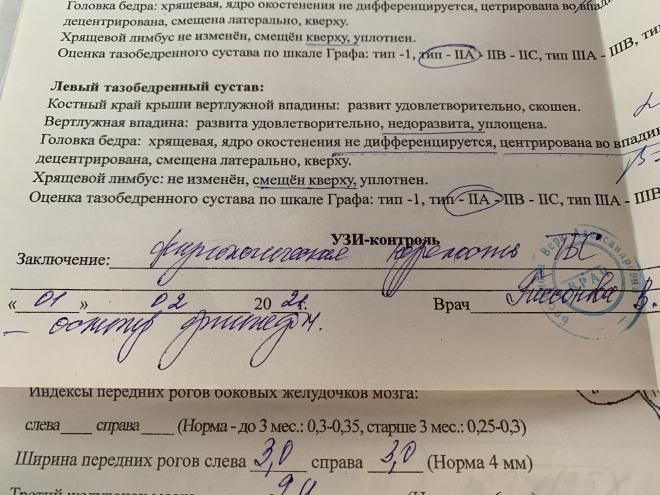 Головка бедра: хрящевая, ядро окостенения не дифференцируется, цетрирована во впадине
децентрирована, смещена латерально, кверху.
Хрящевой лимбус не изменён, смещён кверху, уплотнен.
Оценка тазобедренного сустава по шкале Графа: тип -1, тип - IIA - IIB - IIC, тип IIIA - IIIB, тип
Левый тазобедренный сустав:
Костный край крыши вертлужной впадины: развит удовлетворительно, скошен.
Вертлужная впадина: развита удовлетворительно, недоразвита, уплощена.
Головка бедра: хрящевая, ядро окостенения не дифференцируется, центрирована во впадин
децентрирована, смещена латерально, кверху.
Хрящевой лимбус: не изменён, смещён кверху, уплотнен.
Оценка тазобедренного сустава по шкале Графа: тип -1, тип - IIA - IIB - IIC, тип IIIA - IIIB
УЗИ-контроль
Заключение: физиологическая незрелость ТБС
« 01 » 02 20 21г. Врач
- осмотр ортопеда.
Индексы передних рогов боковых желудочков мозга:
слева ____ справа ____ (Норма - до 3 мес.: 0,3-0,35, старше 3 мес.: 0,25-0,3)
Ширина передних рогов слева 3,0 справа 3,0 (Норма 4 мм)